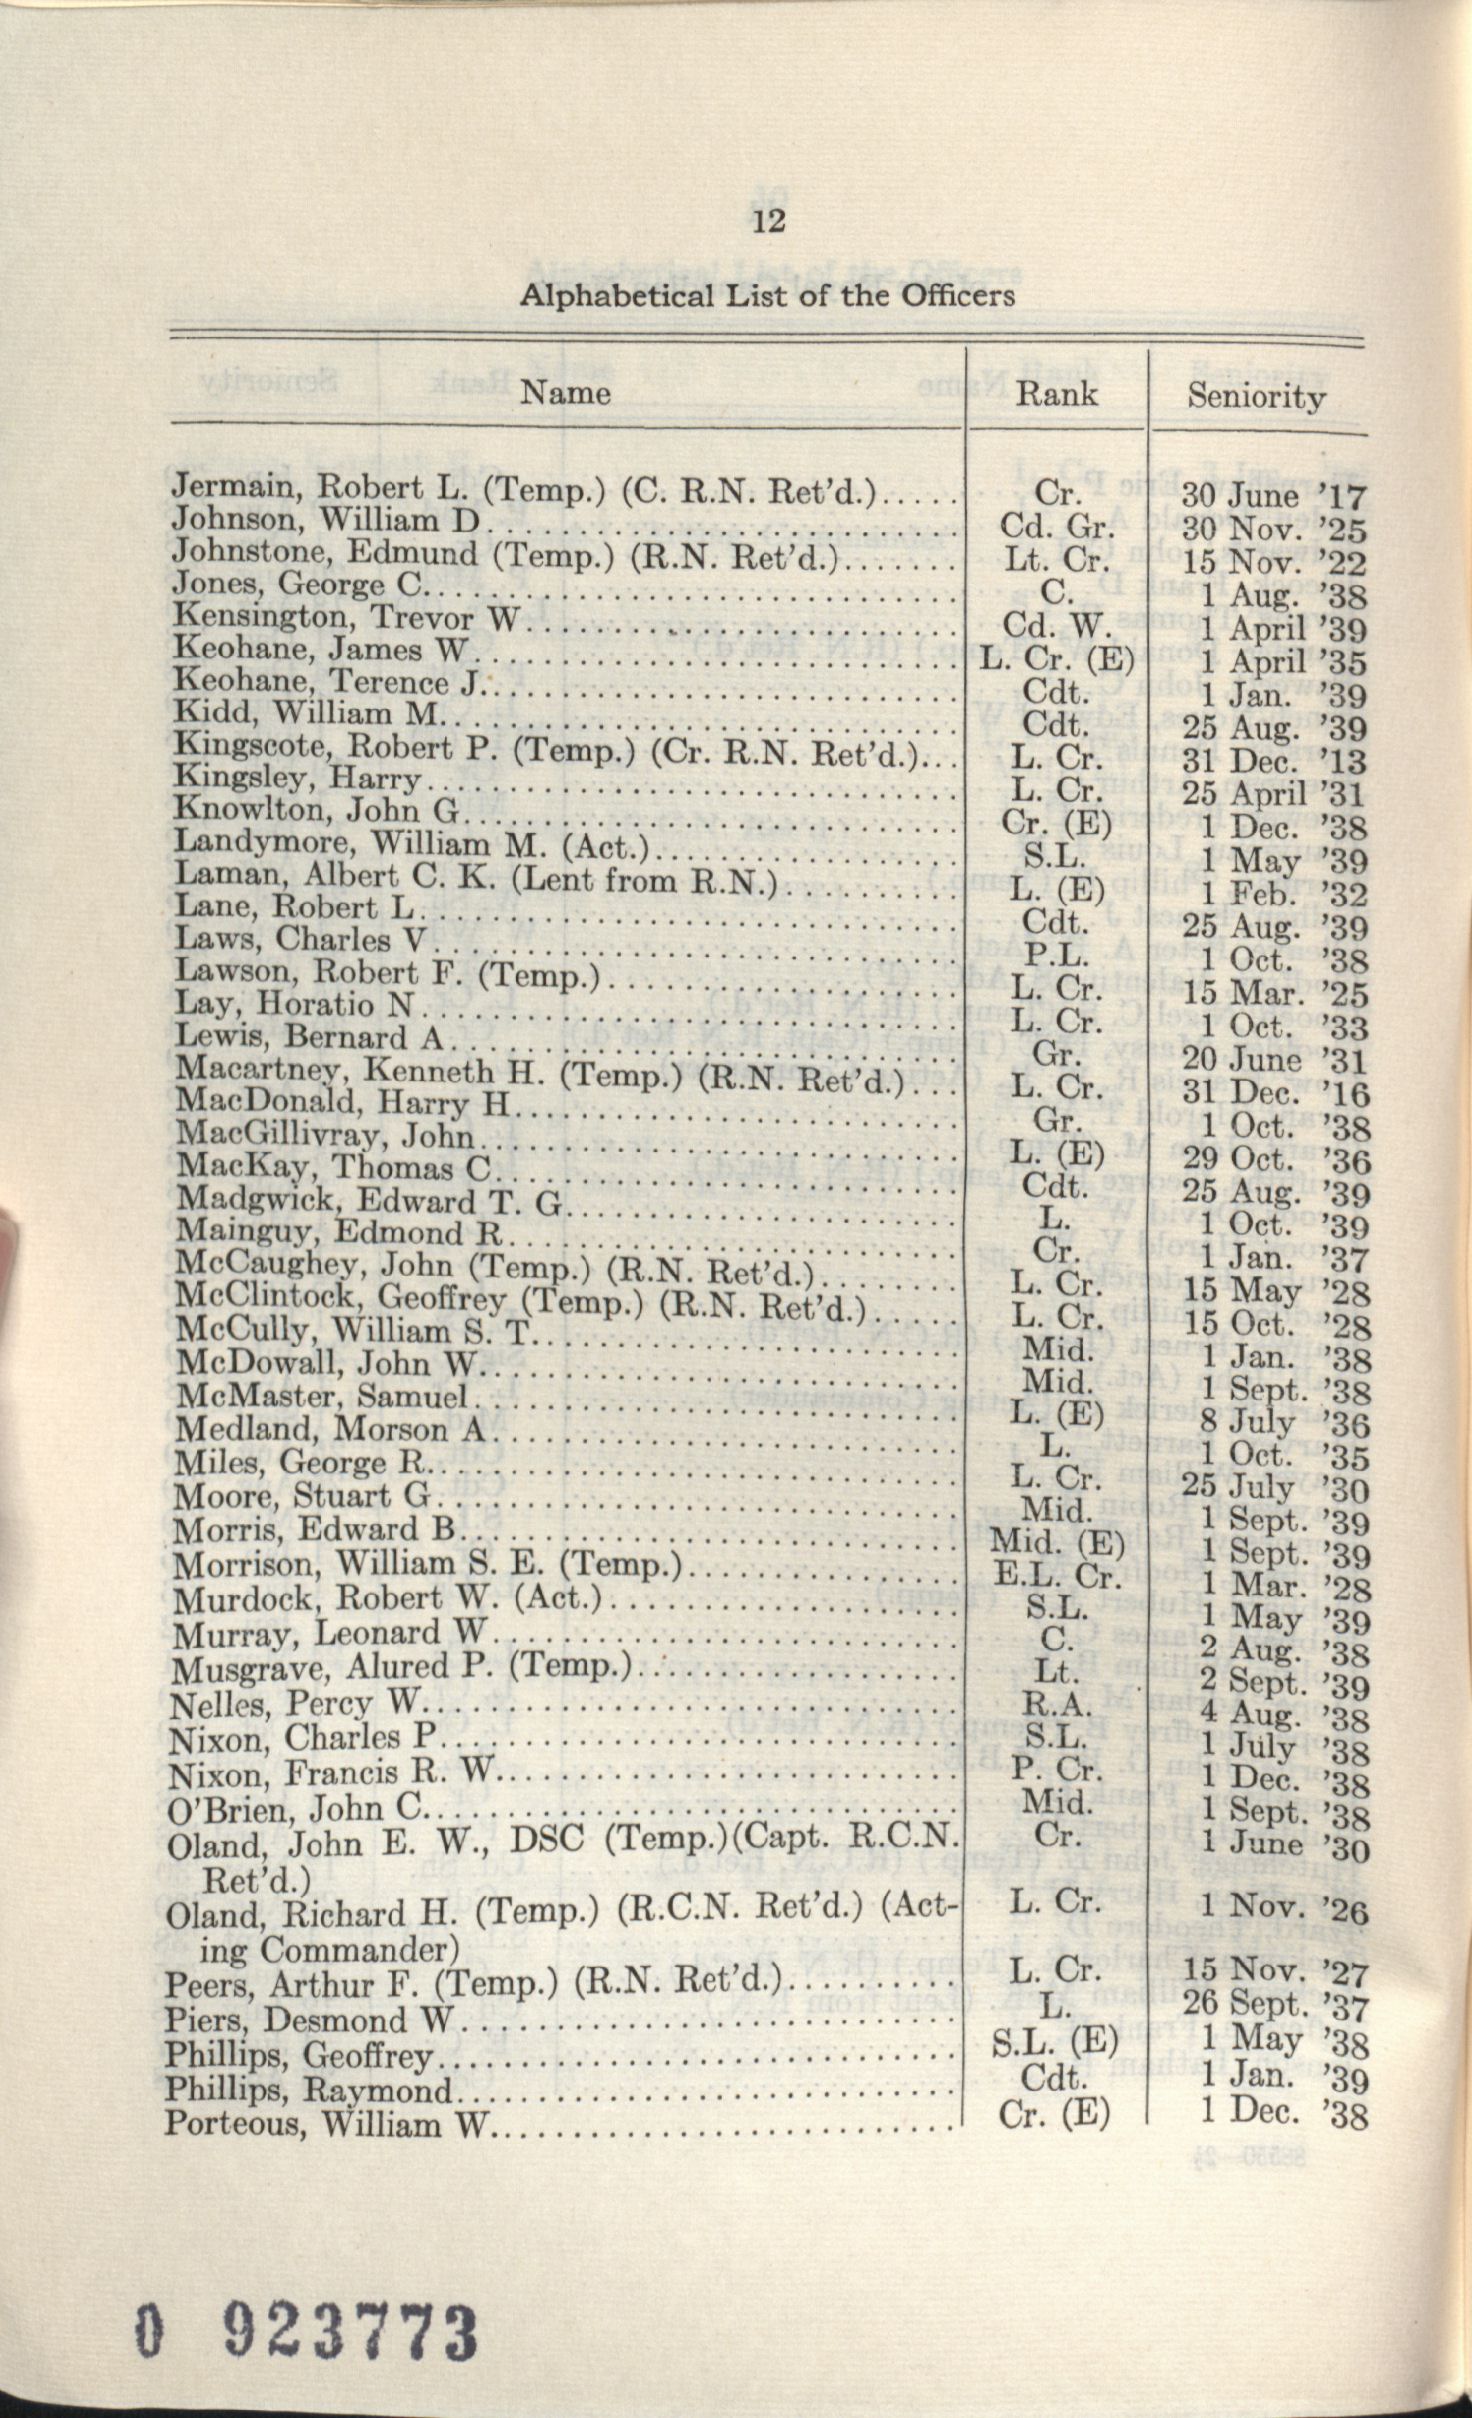 12
Alphabetical List of the Officers
Name Rank Seniority
Jermain, Robert L. (Temp.) (C. R.N. Ret'd.)..... Cr. 30 June '17
Johnson, William D. Cd. Gr. 30 Nov. '25
Johnstone, Edmund (Temp.) (R.N. Ret'd.)....... Lt. Cr. 15 Nov. '22
Jones, George C. C. 1 Aug. '38
Kensington, Trevor W. Cd. W. 1 April '39
Keohane, James W. L. Cr. (E) 1 April '35
Keohane, Terence J. Cdt. 1 Jan. '39
Kidd, William M. Cdt. 25 Aug. '39
Kingscote, Robert P. (Temp.) (Cr. R.N. Ret'd.)... L. Cr. 31 Dec. '13
Kingsley, Harry. L. Cr. 25 April '31
Knowlton, John G. Cr. (E) 1 Dec. '38
Landymore, William M. (Act.). S.L. 1 May '39
Laman, Albert C. K. (Lent from R.N.). L. (E) 1 Feb. '32
Lane, Robert L. Cdt. 25 Aug. '39
Laws, Charles V. P.L. 1 Oct. '38
Lawson, Robert F. (Temp.). L. Cr. 15 Mar. '25
Lay, Horatio N. L. Cr. 1 Oct. '33
Lewis, Bernard A. Gr. 20 June '31
Macartney, Kenneth H. (Temp.) (R.N. Ret'd.)... L. Cr. 31 Dec. '16
MacDonald, Harry H. Gr. 1 Oct. '38
MacGillivray, John. L. (E) 29 Oct. '36
MacKay, Thomas C. Cdt. 25 Aug. '39
Madgwick, Edward T. G. L. 1 Oct. '39
Mainguy, Edmond R. Cr. 1 Jan. '37
McCaughey, John (Temp.) (R.N. Ret'd.). L. Cr. 15 May '28
McClintock, Geoffrey (Temp.) (R.N. Ret'd.)..... L. Cr. 15 Oct. '28
McCully, William S. T. Mid. 1 Jan. '38
McDowall, John W. Mid. 1 Sept. '38
McMaster, Samuel. L. (E) 8 July '36
Medland, Morson A. L. 1 Oct. '35
Miles, George R. L. Cr. 25 July '30
Moore, Stuart G. Mid. 1 Sept. '39
Morris, Edward B. Mid. (E) 1 Sept. '39
Morrison, William S. E. (Temp.). E.L. Cr. 1 Mar. '28
Murdock, Robert W. (Act.). S.L. 1 May '39
Murray, Leonard W. C. 2 Aug. '38
Musgrave, Alured P. (Temp.). Lt. 2 Sept. '39
Nelles, Percy W. R.A. 4 Aug. '38
Nixon, Charles P. S.L. 1 July '38
Nixon, Francis R. W. P. Cr. 1 Dec. '38
O'Brien, John C. Mid. 1 Sept. '38
Oland, John E. W., DSC (Temp.)(Capt. R.C.N. Cr. 1 June '30
Ret'd.)
Oland, Richard H. (Temp.) (R.C.N. Ret'd.) (Act- L. Cr. 1 Nov. '26
ing Commander)
Peers, Arthur F. (Temp.) (R.N. Ret'd.). L. Cr. 15 Nov. '27
Piers, Desmond W. L. 26 Sept. '37
Phillips, Geoffrey. S.L. (E) 1 May '38
Phillips, Raymond. Cdt. 1 Jan. '39
Porteous, William W. Cr. (E) 1 Dec. '38
0 923773